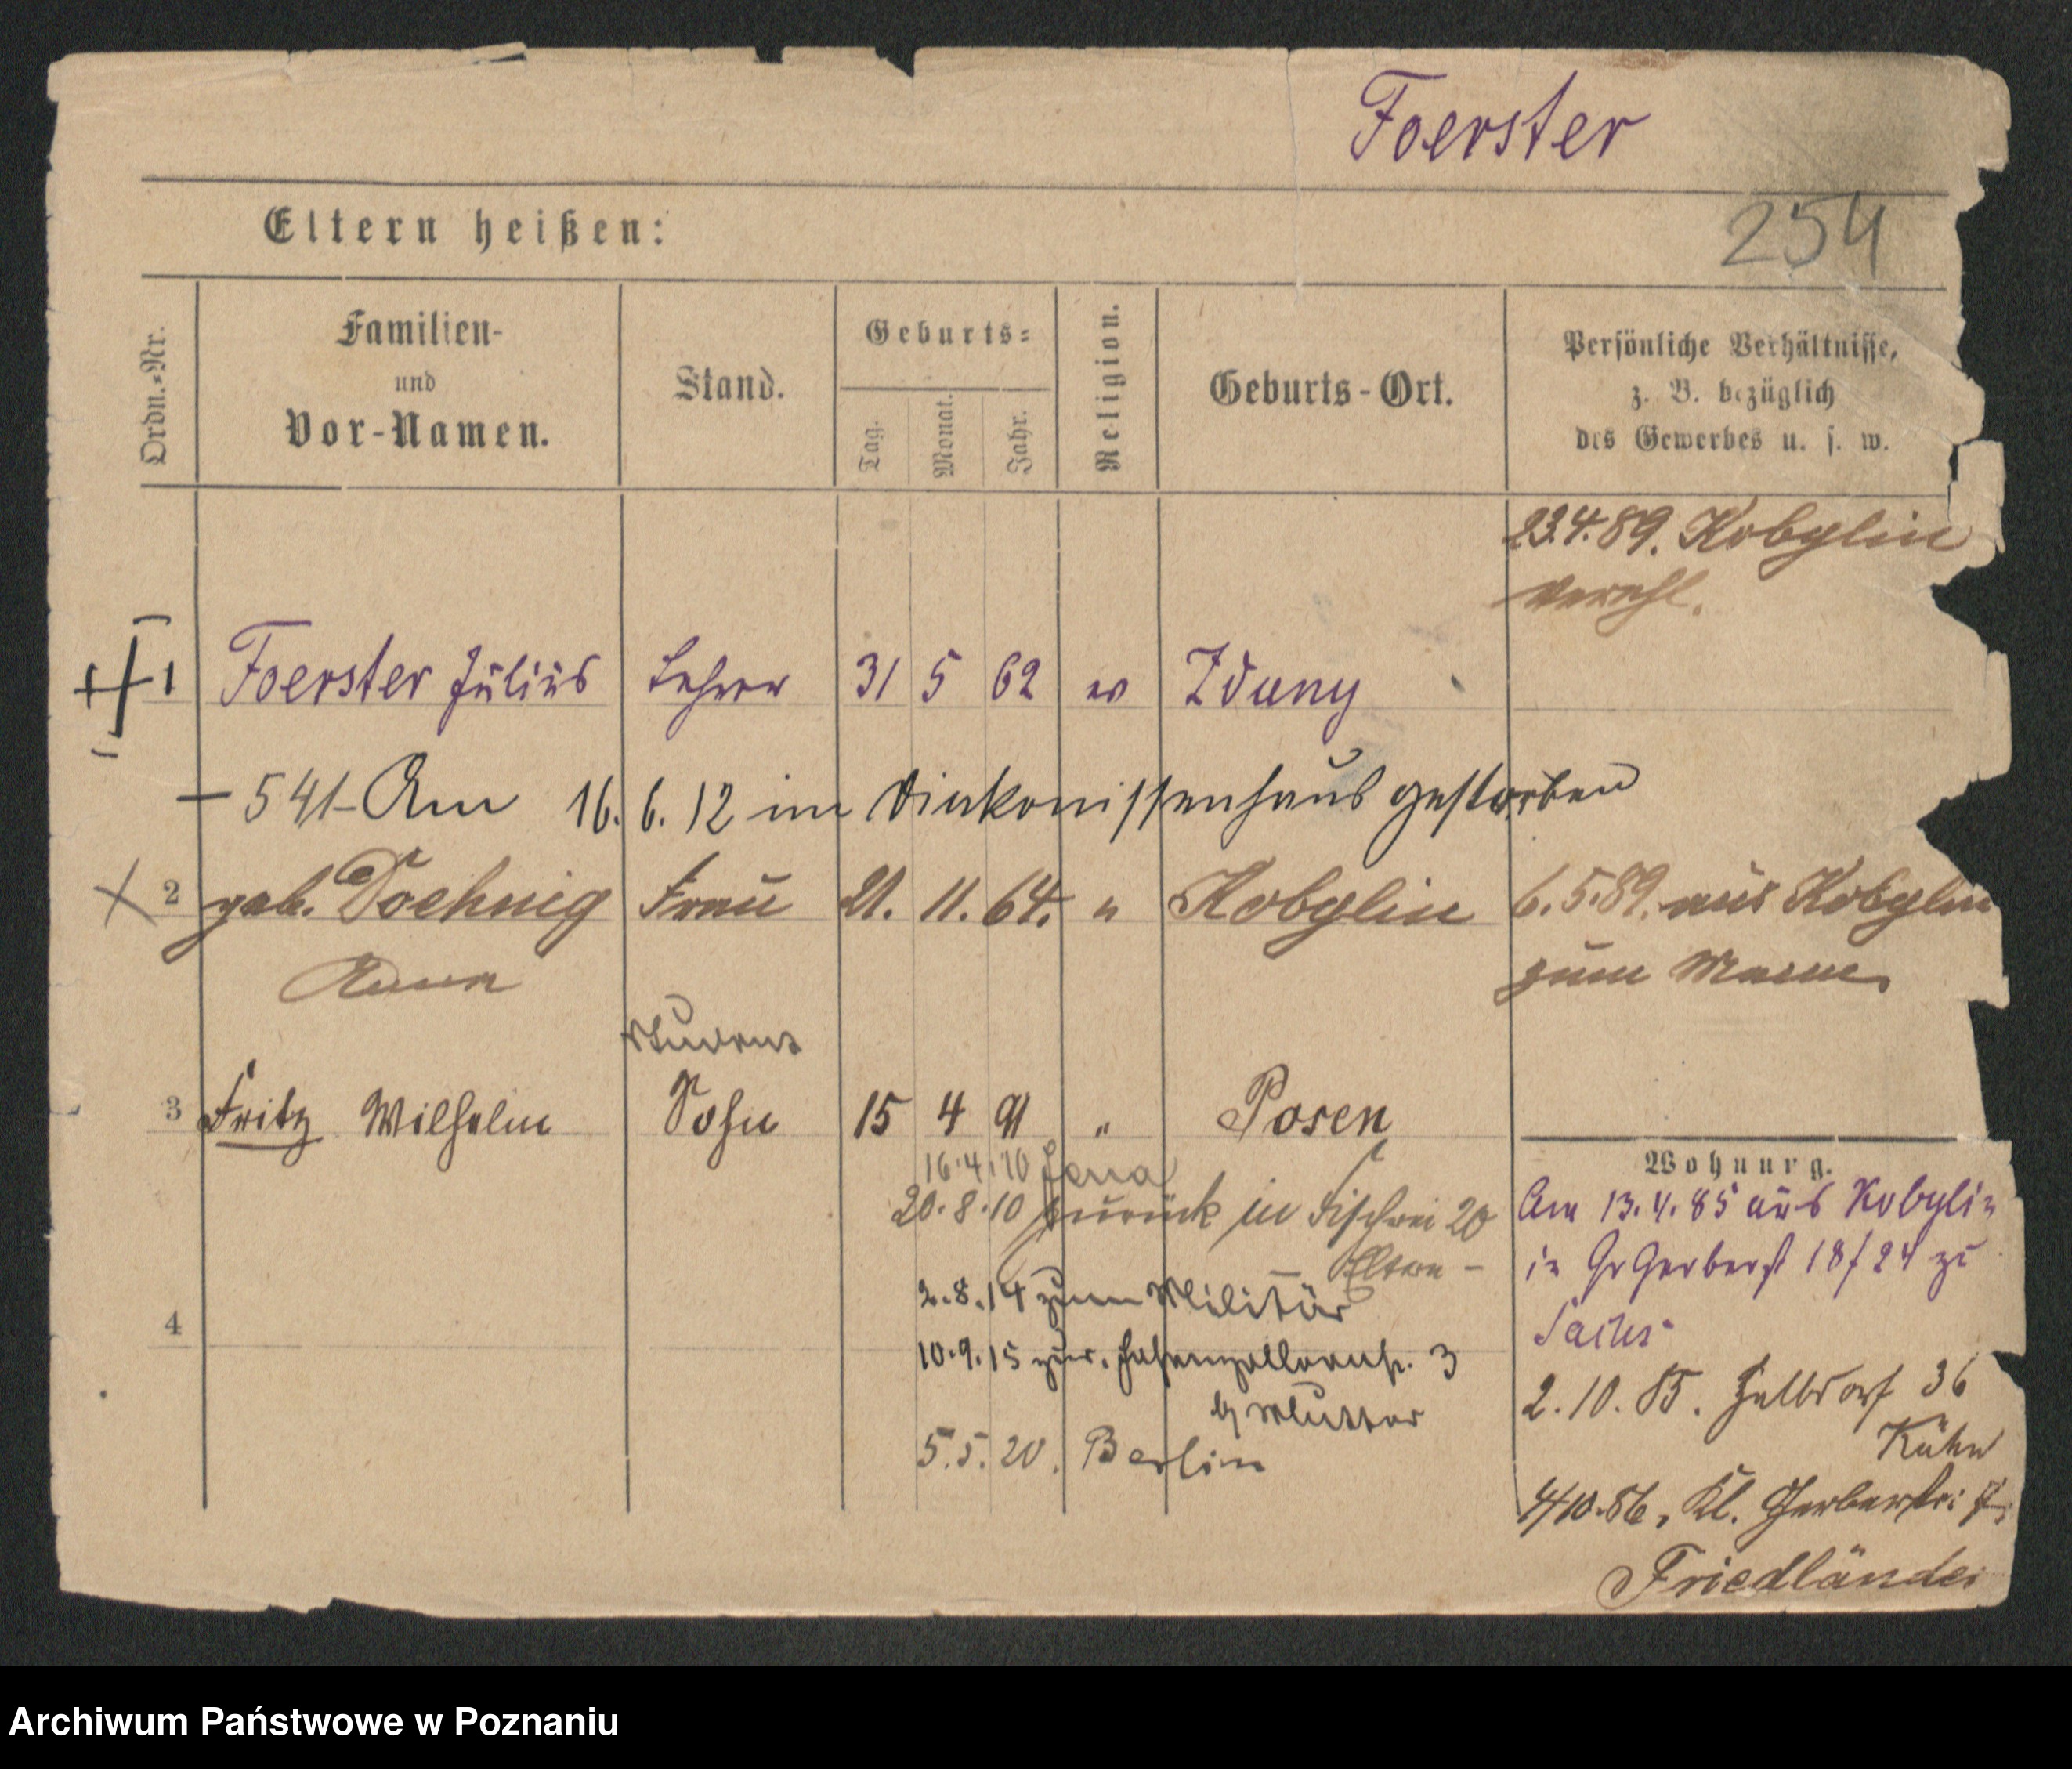 Foerster
Eltern heißen:
254
Ordn.-Nr.
Familien-
und
Vor-Namen.
Stand.
Geburts-
Tag.
Monat.
Jahr.
Religion.
Geburts-Ort.
Persönliche Verhältnisse,
z. B. bezüglich
des Gewerbes u. s. w.
23.4.89. Kobylin
verehl.
1 Foerster Julius Lehrer 31 5 62 ev Zduny
541 Am 16.6.12 im Diakonissenhaus gestorben
2 geb. Doehnig Frau 21. 11. 64. " Kobylin 6.5.89. aus Kobylin
Anna zum Manne
Student
3 Fritz Wilhelm Sohn 15 4 91 " Posen
16.4.10 Jena
20.8.10 zurück in Fischerei 20
Eltern -
2.8.14 zum Militär
10.9.15 zur. Hohenzollernstr. 3
b/ Mutter
5.5.20. Berlin
4
Wohnung.
Am 13.4.85 aus Kobylin
in Gr Gerberst 18/24 zu
Sachs
2.10.85. Halbdorf 36
Kühn
4/10.86. Kl. Gerberstr:
Friedländer
Archiwum Państwowe w Poznaniu